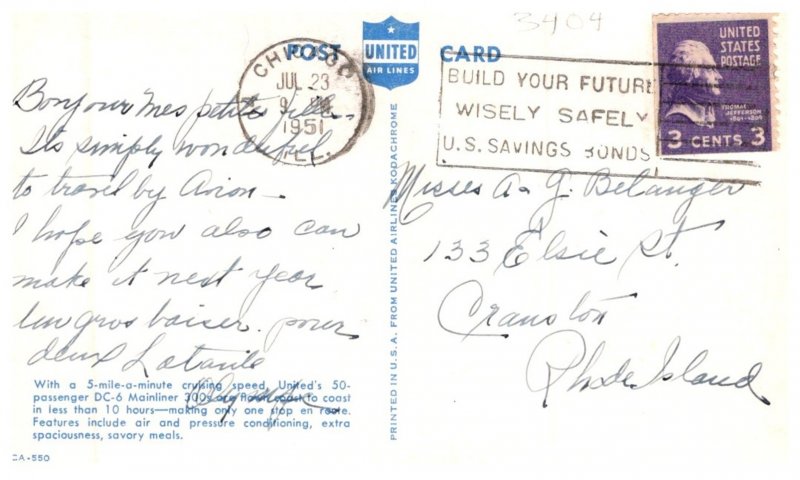 3404
POST CARD
UNITED
AIR LINES
CHICAGO
JUL 23
1951
ILL.
BUILD YOUR FUTURE
WISELY SAFELY
U.S. SAVINGS BONDS
UNITED
STATES
POSTAGE
THOMAS
JEFFERSON
1801-1809
3 CENTS 3
Bonjour mes petites filles
Its simply wonderful
to travel by Avion—
I hope you also can
make it next year
Un gros baiser pour
deux La tante
Olympe
With a 5-mile-a-minute cruising speed, United's 50-
passenger DC-6 Mainliner 300s are flown coast to coast
in less than 10 hours—making only one stop en route.
Features include air and pressure conditioning, extra
spaciousness, savory meals.
CA-550
PRINTED IN U.S.A. FROM UNITED AIRLINES KODACHROME
Misses A & J. Belanger
133 Elsie St.
Cranston
Rhode Island